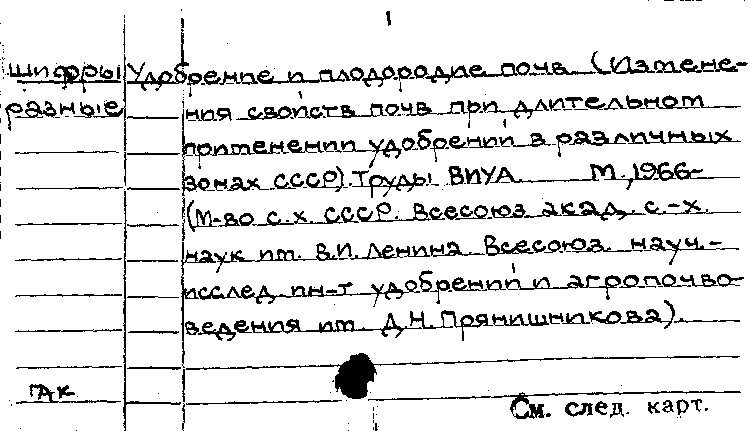 1
Шифры Удобрение и плодородие почв (Измене-
разные ния свойств почв при длительном
применении удобрений в различных
зонах СССР). Труды ВИУА. М., 1966-
(М-во с.х. СССР. Всесоюз. акад. с.-х.
наук им. В.И. Ленина. Всесоюз. науч.-
исслед. ин-т удобрений и агропочво-
ведения им. Д.Н. Прянишникова).
ГАК
См. след. карт.